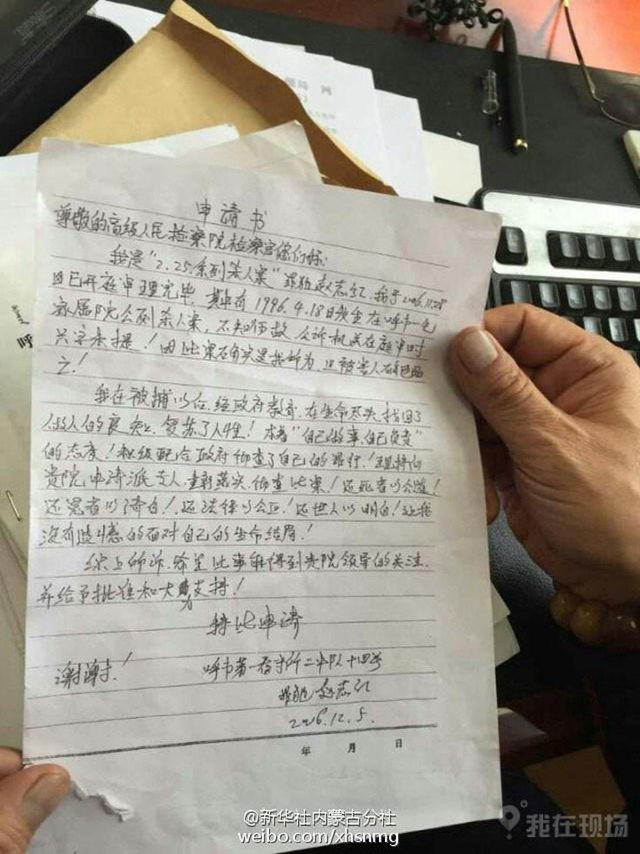 申请书
尊敬的高级人民检察院检察官你们好:
我是"2.25系列杀人案"罪犯赵志红,我于2006.11.28
日已开庭审理完毕,其中有1996.4.18日发生在呼市一毛
家属院公厕杀人案,不知何故,公诉机关在庭审时
只字未提!因此案确实是我所为,且被害人确已
亡!
我在被捕以后,经政府教育,在生命尽头找回了
做人的良知,复苏了人性!本着"自己做事,自己负责"
的态度!积极配合政府彻查了自己的罪行!现特向
贵院申请派专人重新落实、彻查此案!还死者以公道!
还冤者以清白!还法律以公正!还世人以明白!让我
没有遗憾的面对自己的生命结局!
综上所诉,希望此事能得到贵院领导的关注,
并给予批准和大力支持!
特此申请
谢谢!
呼市第一看守所二中队十四号
罪犯 赵志红
2006.12.5.
年 月 日
@新华社内蒙古分社
weibo.com/xhsnmg
我在现场